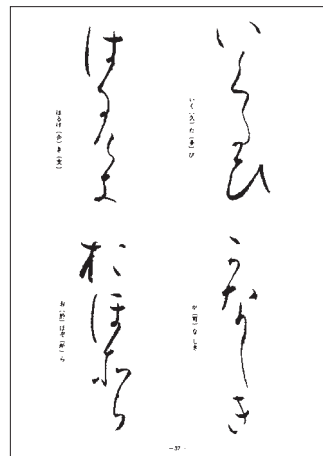 いくたひ
いく(久)た(多)び
かなしき
か(可)なしき
はるけき
はるけ(介)き(支)
おほそら
お(於)ほぞ(所)ら
- 37 -